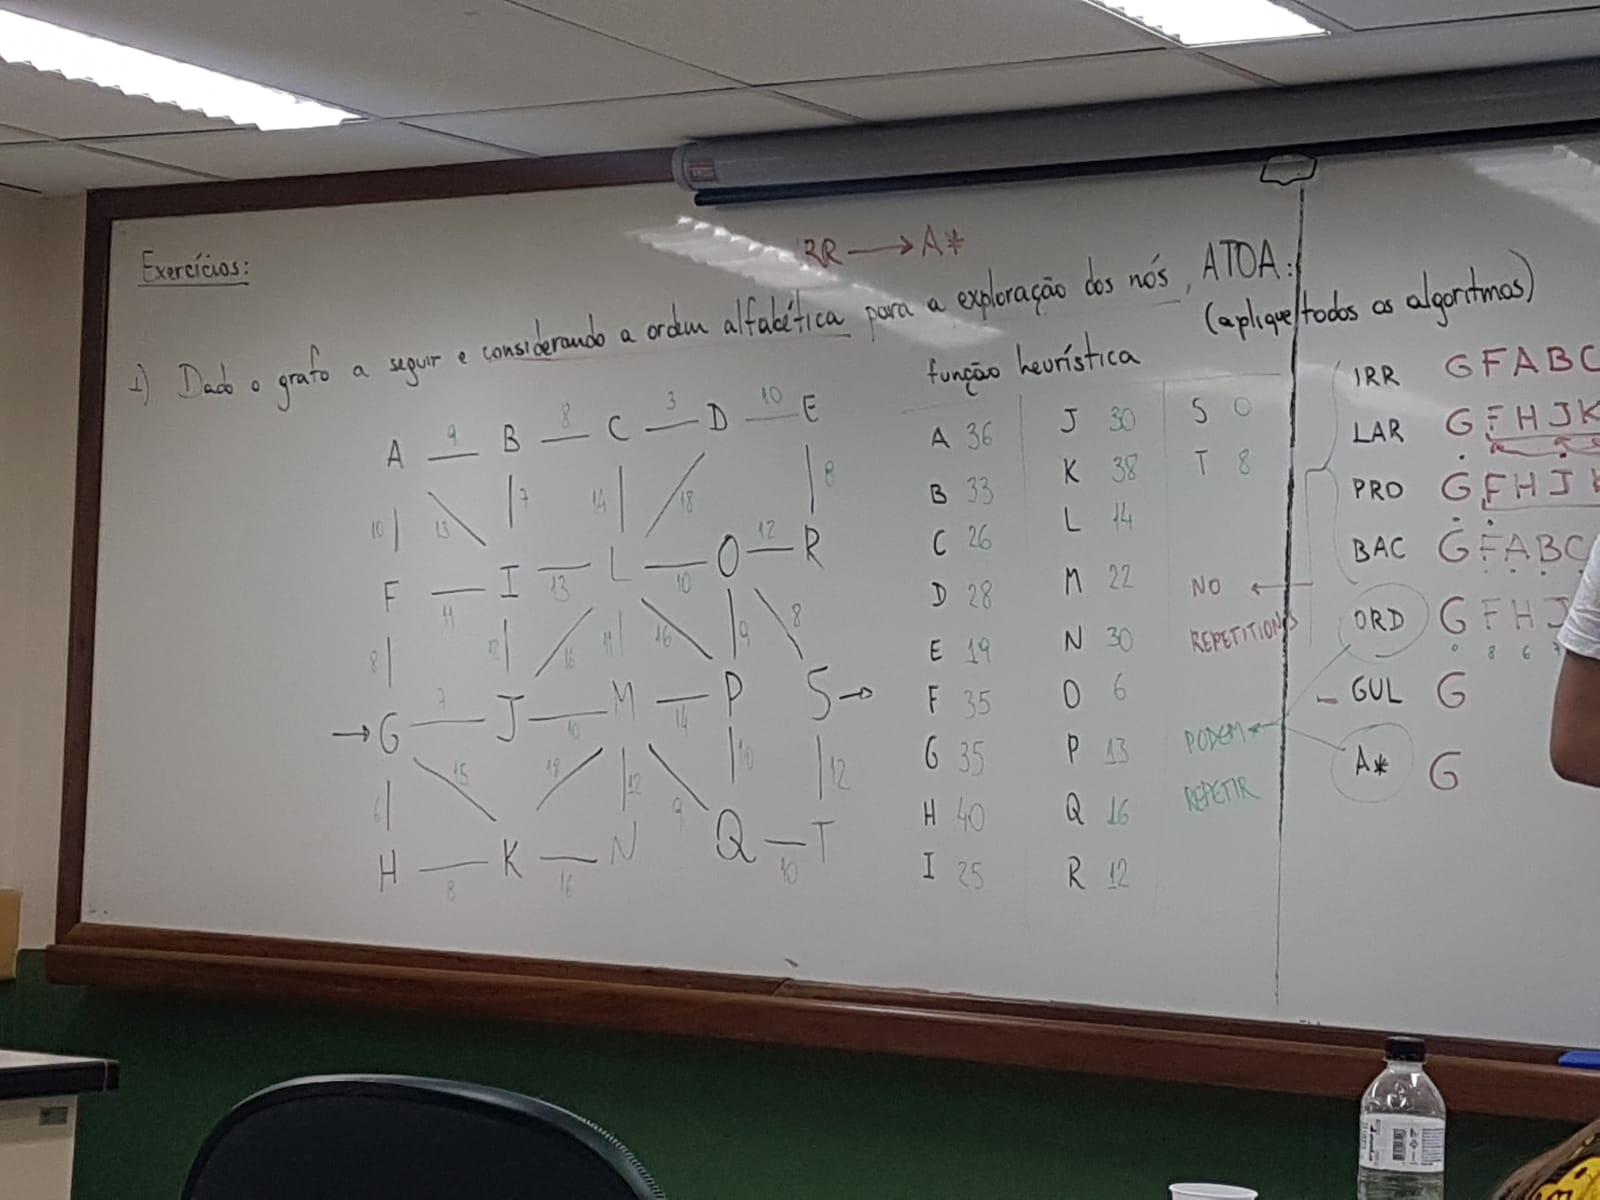 Exercícios:
RR → A*
1) Dado o grafo a seguir e considerando a ordem alfabética para a exploração dos nós, ATOA:
(aplique todos os algoritmos)
função heurística
A 9 B 8 C 3 D 10 E
10 13 7 14 18 8
F 11 I 13 L 10 O 12 R
8 12 16 11 16 9 8
→ G 7 J 10 M 14 P S →
6 15 18 12 9 10 12
H 8 K 16 N Q 10 T
A 36 J 30 S 0
B 33 K 38 T 8
C 26 L 14
D 28 M 22
E 19 N 30
F 35 O 6
G 35 P 13
H 40 Q 16
I 25 R 12
NO ←
REPETITIONS
PODEM ←
REPETIR
IRR G F A B C
LAR G F H J K
PRO G F H J
BAC G F A B C
ORD G F H J
0 8 6 7
- GUL G
A* G